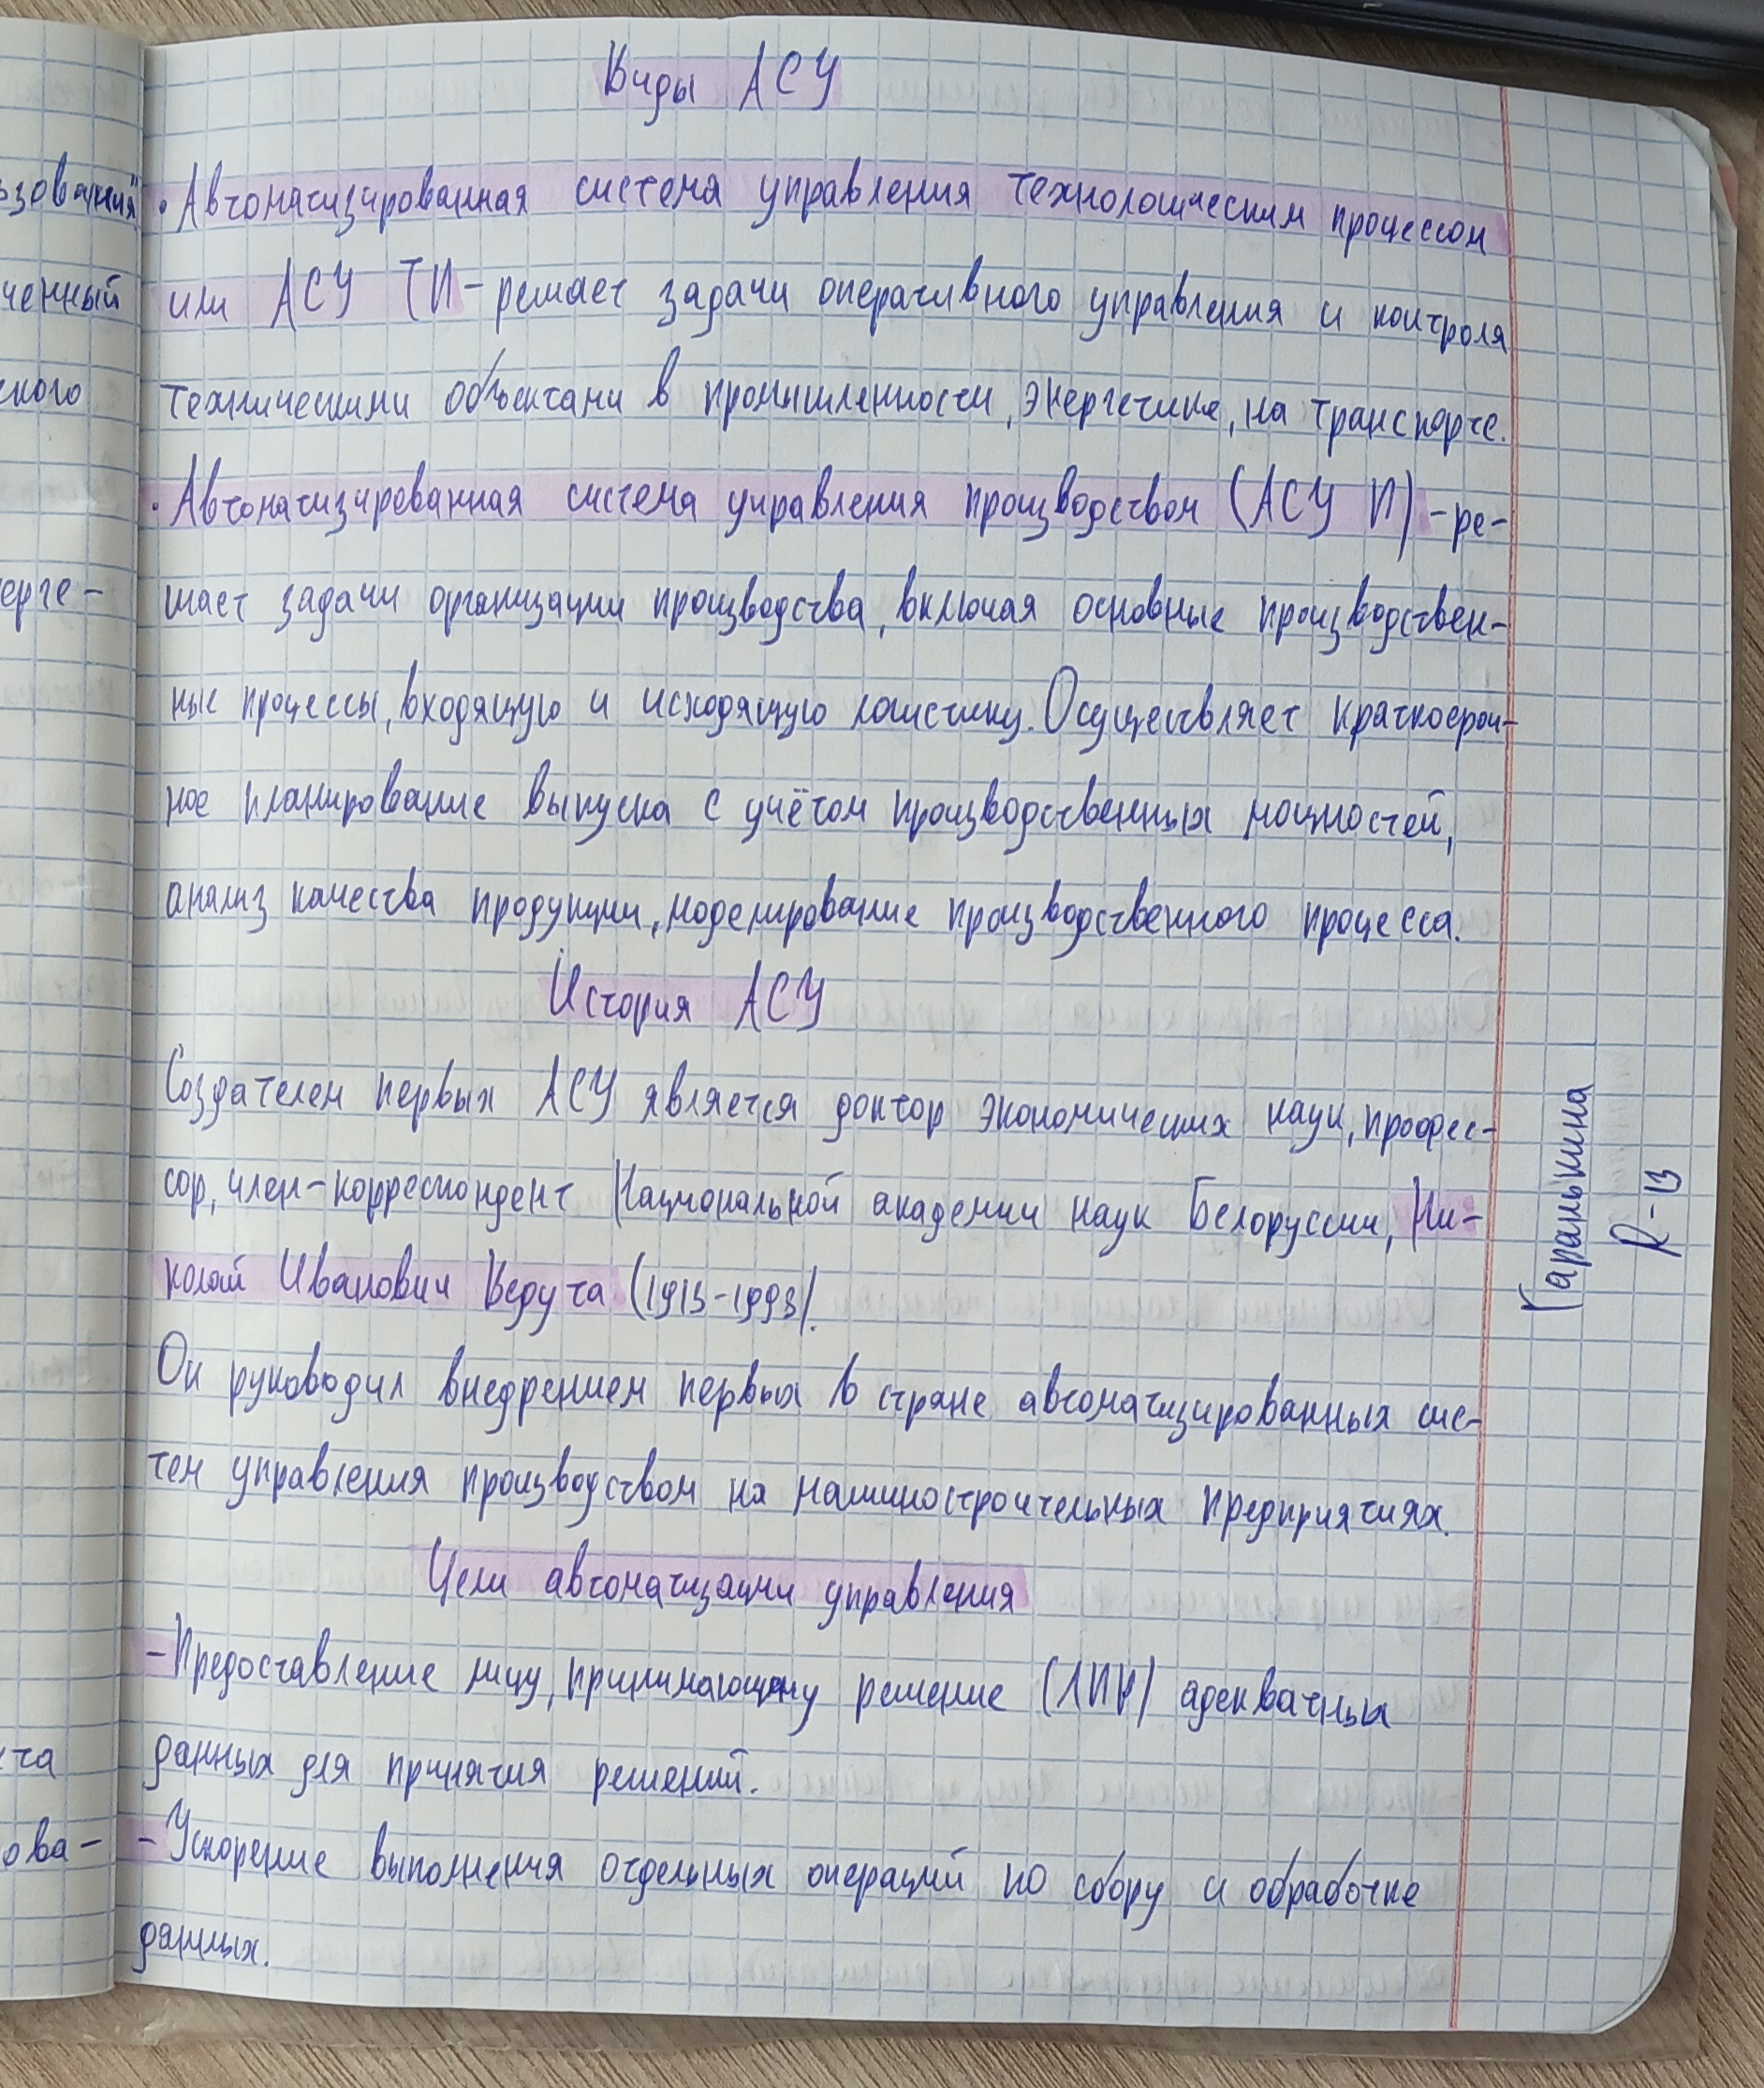 Виды АСУ
• Автоматизированная система управления технологическим процессом
или АСУ ТП - решает задачи оперативного управления и контроля
техническими объектами в промышленности, энергетике, на транспорте.
• Автоматизированная система управления производством (АСУ П) - ре-
шает задачи организации производства, включая основные производствен-
ные процессы, входящую и исходящую логистику. Осуществляет краткосроч-
ное планирование выпуска с учётом производственных мощностей,
анализ качества продукции, моделирование производственного процесса.
История АСУ
Создателем первых АСУ является доктор экономических наук, профес-
сор, член-корреспондент Национальной академии наук Белоруссии, Ни-
колай Иванович Ведута (1913-1998).
Он руководил внедрением первых в стране автоматизированных сис-
тем управления производством на машиностроительных предприятиях.
Цели автоматизации управления
- Предоставление лицу, принимающему решение (ЛПР) адекватных
данных для принятия решений.
- Ускорение выполнения отдельных операций по сбору и обработке
данных.
Гаранькина
R-13
зования"
ченный
ского
ерге-
та
ова-